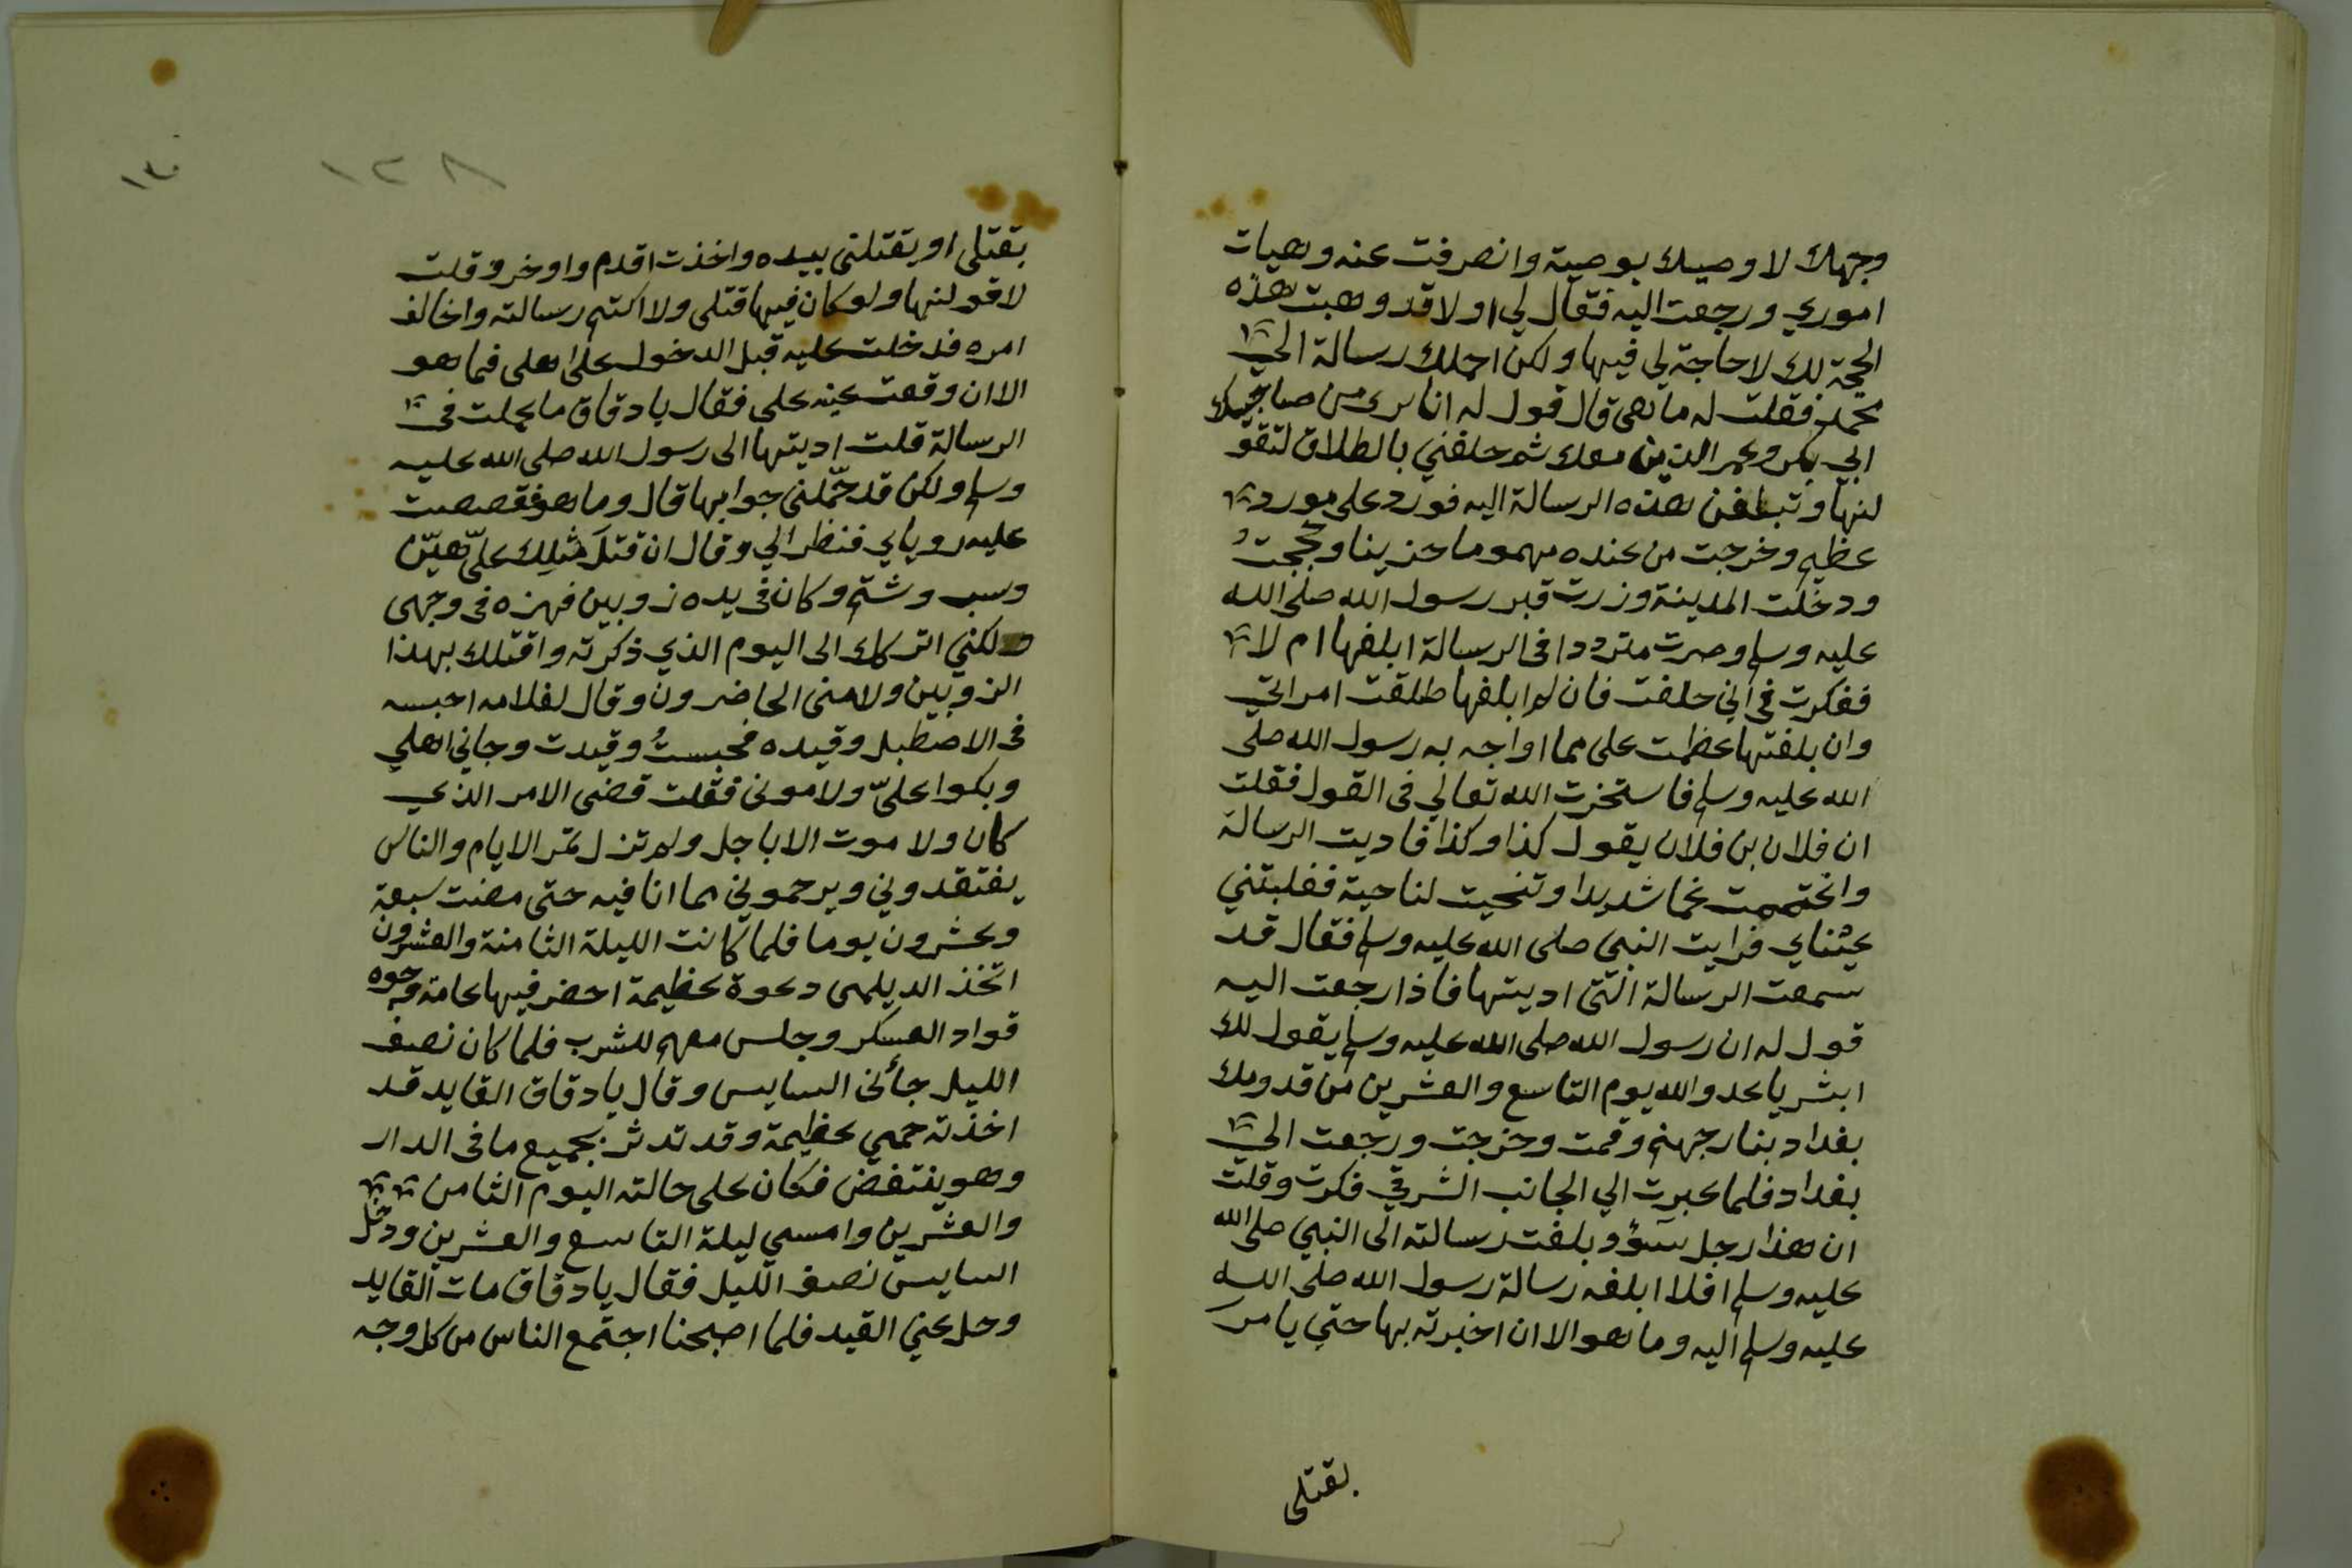 وجهك لاوصيك بوصية وانصرفت عنه وهيات
اموري ورجعت اليه فقال لي اولا قد وهبت هذه
الحجة لك لاحاجة لي فيها ولكن احملك رسالة الي
محمد فقلت له ما هي قال قول له انا برى من صاحبيك
ابي بكر وعمر الذين معك ثم حلفني بالطلاق لتقو
لنها وتبلغن هذه الرسالة اليه فورد على مورد
عظيم وخرجت من عنده مهموما حزينا وحججتُ
ودخلت المدينة وزرت قبر رسول الله صلى الله
عليه وسلم وصرت مترددا فى الرسالة ابلغها ام لا
ففكرت فى اني حلفت فان لم ابلغها طلقت امراتي
وان بلغتها عظمت على مما اواجه به رسول الله صلى
الله عليه وسلم فاستخرت الله تعالي فى القول فقلت
ان فلان بن فلان يقول كذا وكذا فاديت الرسالة
واغتممت غما شديدا وتنحيت لناحية فغلبتني
عيناي فرايت النبي صلى الله عليه وسلم فقال قد
سمعت الرسالة التى اديتها فاذا رجعت اليه
قول له ان رسول الله صلى الله عليه وسلم يقول لك
ابشر ياعدو الله يوم التاسع والعشرين من قدومك
بغداد بنار جهنم وقمت وخرجت ورجعت الي
بغداد فلما عبرت الي الجانب الشرقي فكرت وقلت
ان هذا رجل سوء وبلغت رسالته الى النبي صلى الله
عليه وسلم افلا ابلغه رسالة رسول الله صلى الله
عليه وسلم اليه وما هو الا ان اخبرته بها حتي يامر
بقتلى
١٢٨
١٣٠
بقتلى او يقتلنى بيده واخذت اقدم واوخر وقلت
لاقولنها ولو كان فيها قتلى ولا اكتم رسالته واخالف
امره فدخلت عليه قبل الدخول على اهلى فما هو
الا ان وقعت عينه على فقال يادقاق ما عملت فى
الرسالة قلت اديتها الى رسول الله صلى الله عليه
وسلم ولكن قد حمّلنى جوابها قال وما هو فقصصت
عليه روياي فنظر الي وقال ان قتلَ مثلِك علىّ هيّن
وسب وشتم وكان فى يده زوبين فهزه فى وجهى
ولكني اتركك الى اليوم الذي ذكرته واقتلك بهذا
الزوبين ولامنى الحاضرون وقال لغلامه احبسه
فى الاصطبل وقيده فحبستُ وقيدت وجاني اهلي
وبكوا علىّ ولامونى فقلت قضى الامر الذي
كان ولا موت الا باجل ولم تزل تمر الايام والناس
يفتقدوني ويرحموني مما انا فيه حتى مضت سبعة
وعشرون يوما فلما كانت الليلة الثامنة والعشرون
اتخذ الديلمى دعوة عظيمة احضر فيها عامة وجوه
قواد العسكر وجلس معهم للشرب فلما كان نصف
الليل جأنى السايس وقال يادقاق القايد قد
اخذته حمى عظيمة وقد تدثر بجميع ما فى الدار
وهو ينتفض فكان على حالته اليوم الثامن
والعشرين وامسي ليلة التاسع والعشرين ودخل
السايس نصف الليل فقال يادقاق مات القايد
وحل عني القيد فلما اصبحنا اجتمع الناس من كل وجه